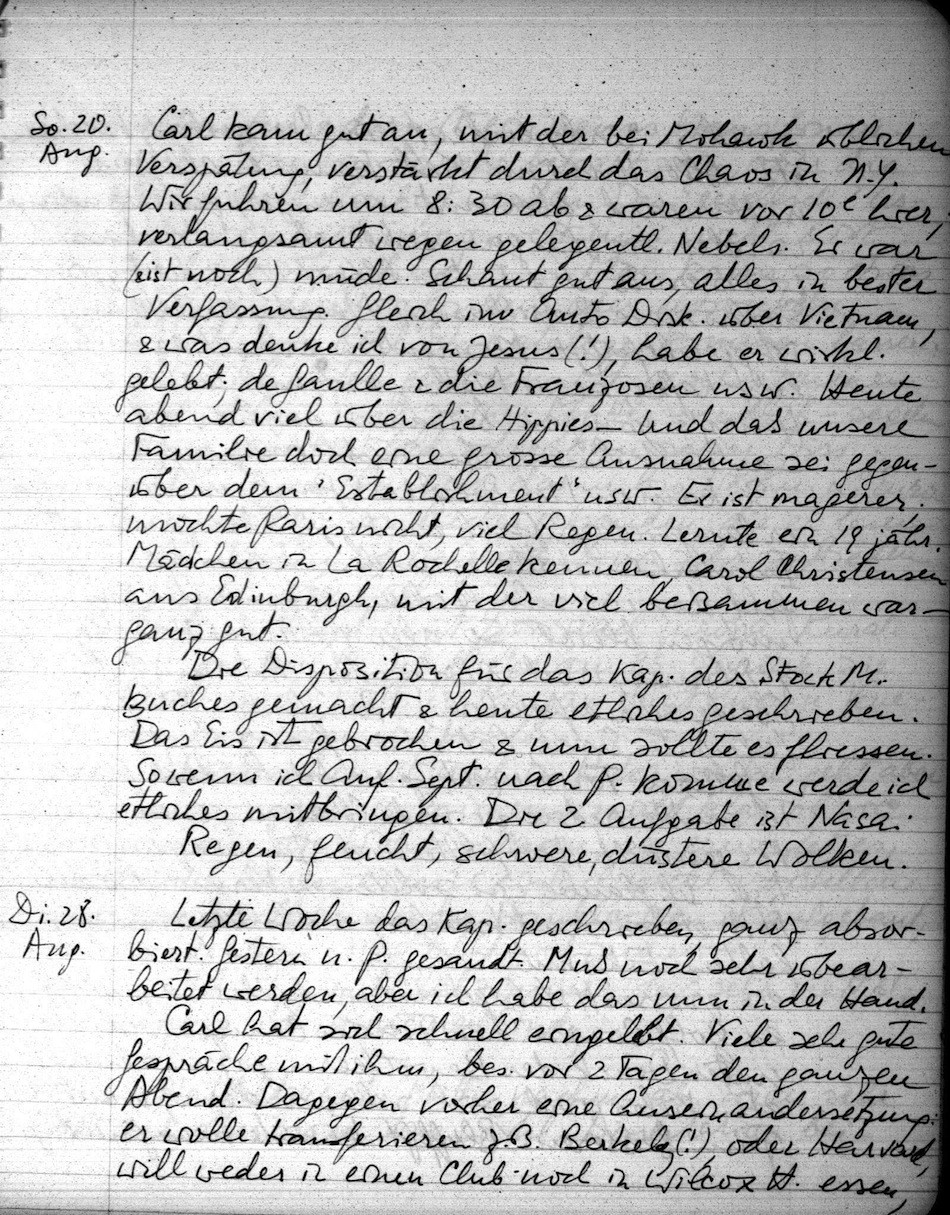 So. 20. Carl kam gut an, mit der bei Mohawk üblichen
Aug. Verspätung, verstärkt durch das Chaos in N.Y.
Wir fuhren um 8:30 ab & waren vor 10h hier,
verlangsamt wegen gelegentl. Nebels. Er war
(& ist noch) müde. Schaut gut aus, alles in bester
Verfassung. Gleich im Auto Disk. über Vietnam,
& was denke ich von Jesus (!), habe er wirkl.
gelebt; de Gaulle & die Franzosen usw. Heute
abend viel über die Hippies – Und daß unsere
Familie doch eine grosse Ausnahme sei gegen-
über dem 'Establishment' usw. Er ist magerer,
mochte Paris nicht, viel Regen. Lernte ein 19 jähr.
Mädchen in La Rochelle kennen, Carol Christensen
aus Edinburgh, mit der viel beisammen war –
ganz gut.
Die Disposition für das Kap. des Stock M.
Buches gemacht & heute etliches geschrieben.
Das Eis ist gebrochen & nun sollte es fliessen.
So wenn ich Anf. Sept. nach P. komme werde ich
etliches mitbringen. Die 2. Aufgabe ist Nasa.
Regen, feucht, schwere, düstere Wolken.
Di. 28. Letzte Woche das Kap. geschrieben, ganz absor-
Aug. biert. Gestern n. P. gesandt. Muß noch sehr übear-
beitet werden, aber ich habe das nun in der Hand.
Carl hat sich schnell eingelebt. Viele sehr gute
Gespräche mit ihm, bes. vor 2 Tagen den ganzen
Abend. Dagegen vorher eine Auseinandersetzung:
er wolle transferieren z.B. Berkeley (!), oder Harvard,
will weder in einen Club noch in Wilcox H. essen,